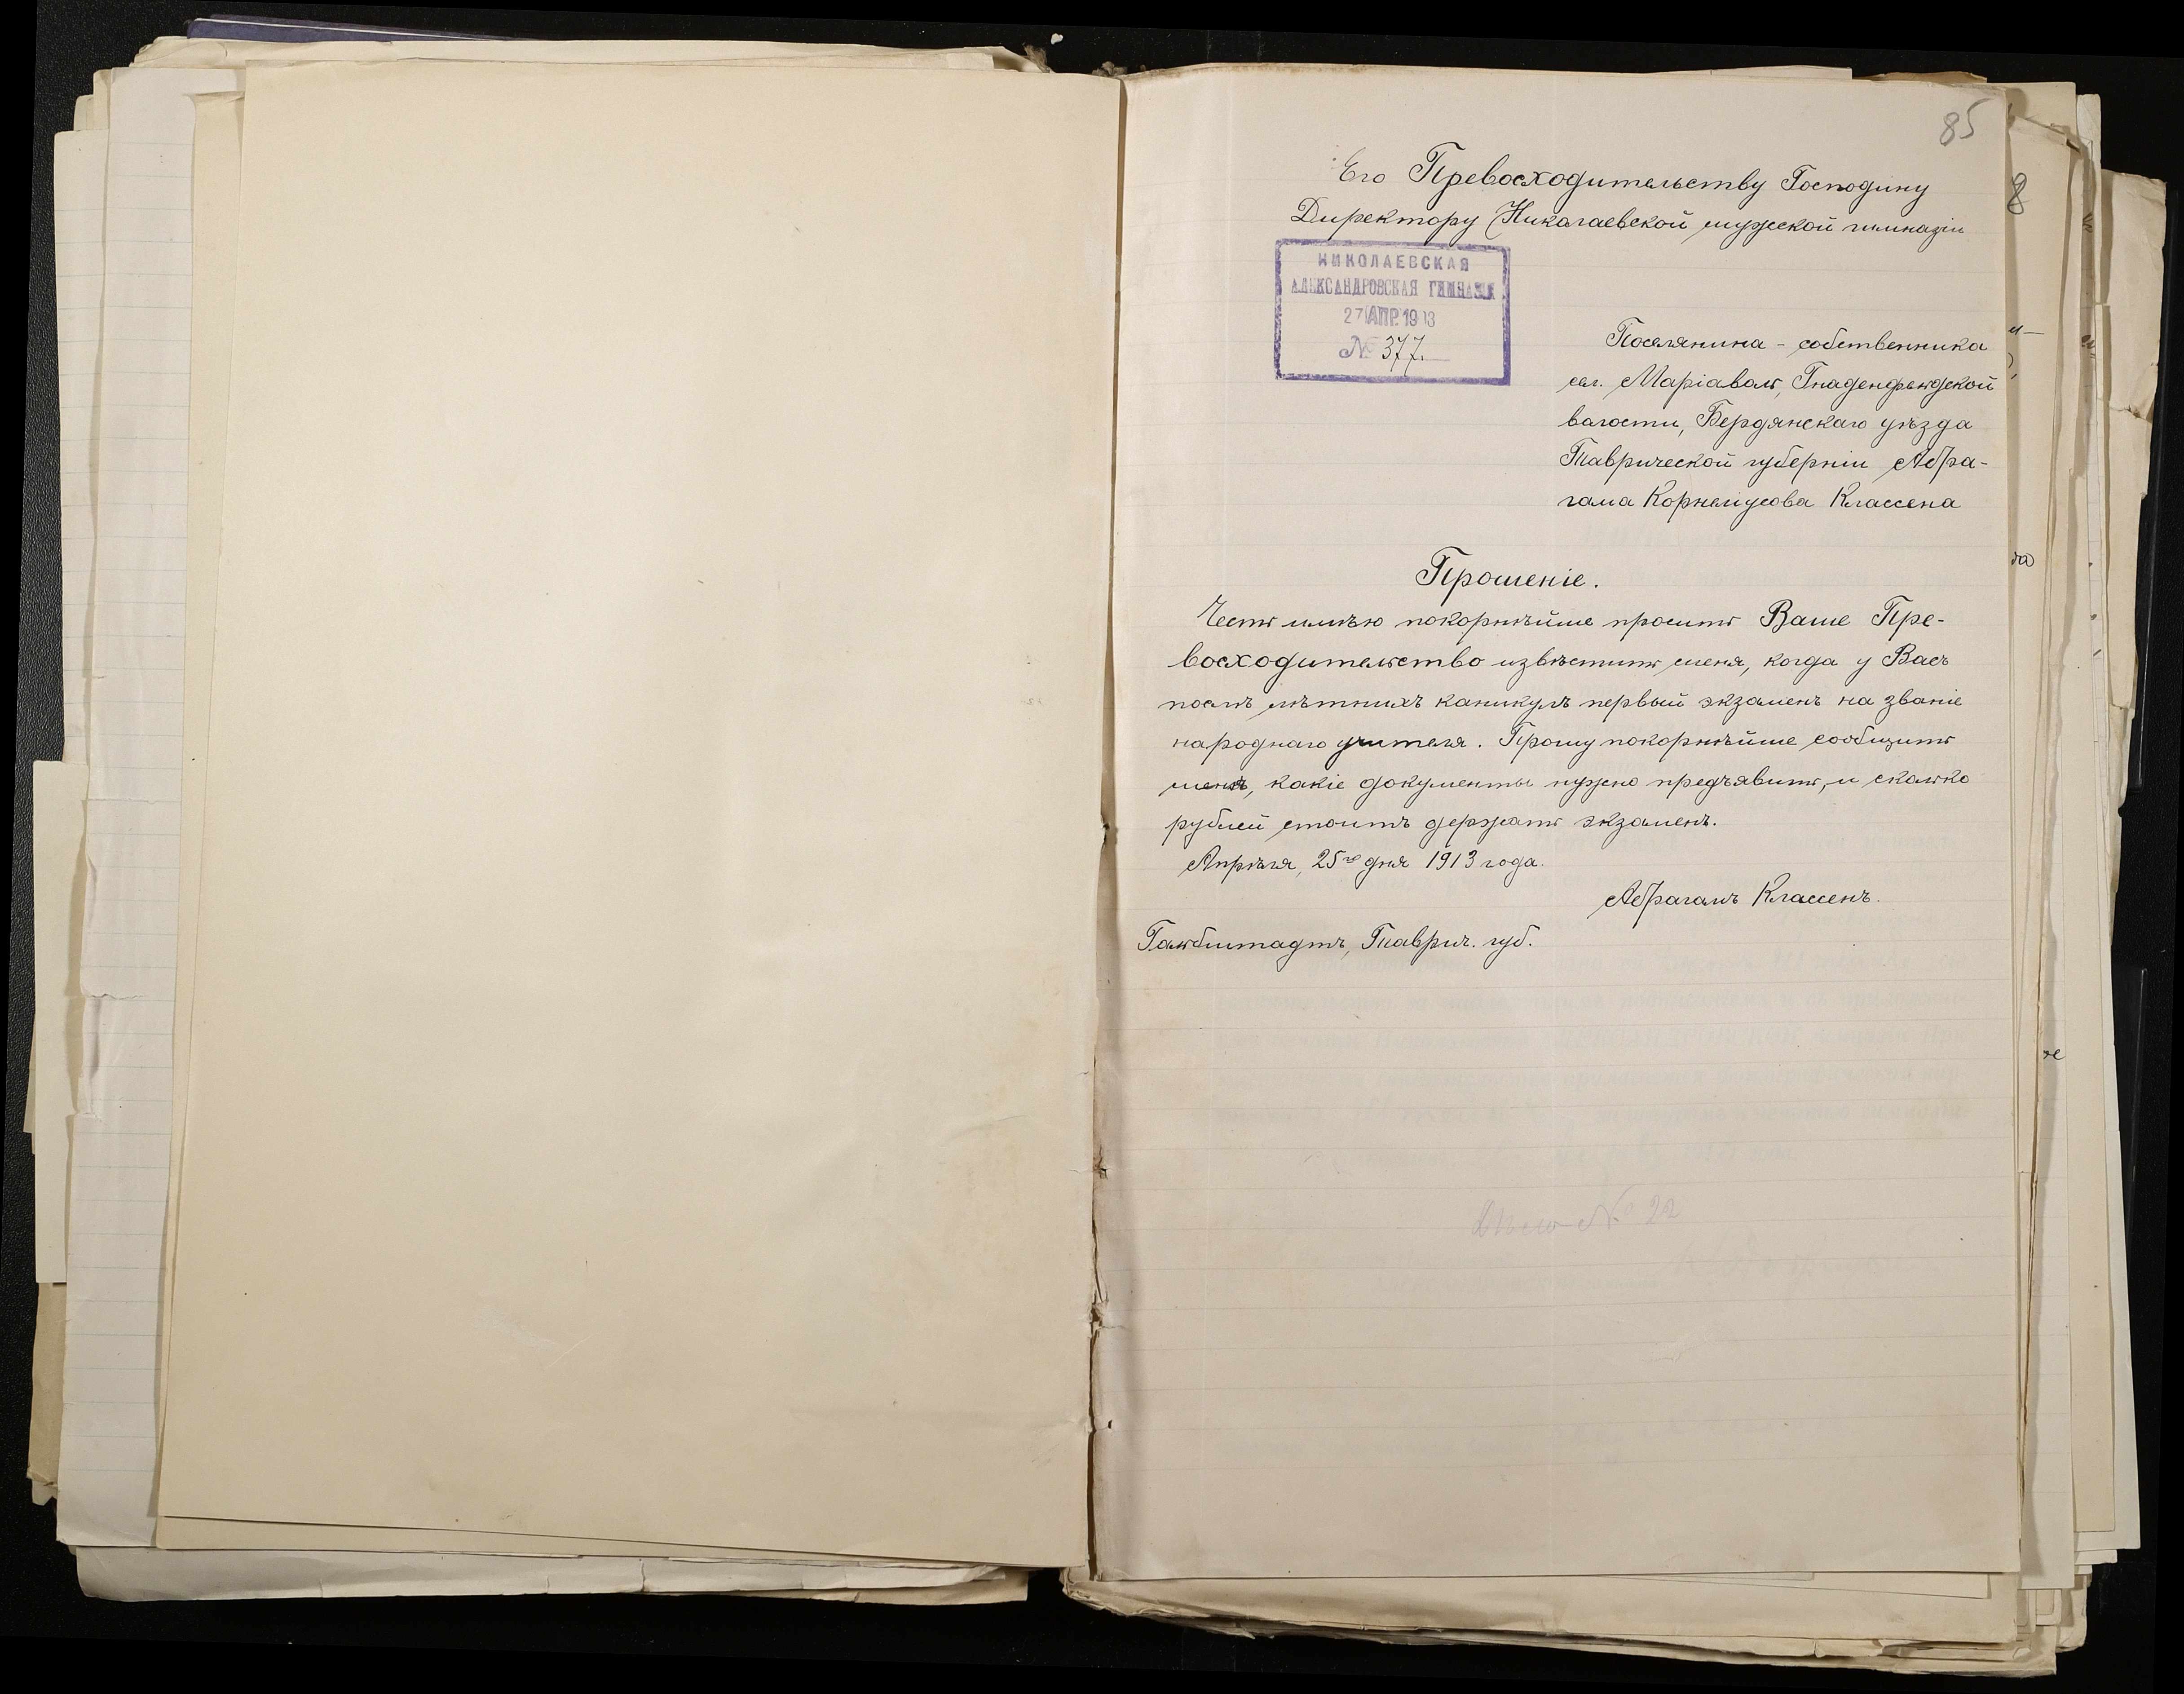 85
Его Превосходительству Господину
Директору Николаевской мужской гимназіи
НИКОЛАЕВСКАЯ
АЛЕКСАНДРОВСКАЯ ГИМНАЗІЯ
27 АПР. 1913
№ 377.
Поселянина - собственника
сел. Маріаволь, Гнаденфельдской
волости, Бердянскаго уѣзда
Таврической губерніи Абра-
гама Корнеліусова Классена
Прошеніе.
Честь имѣю покорнѣйше просить Ваше Пре-
восходительство извѣстить меня, когда у Васъ
послѣ лѣтнихъ каникулъ первый экзаменъ на званіе
народнаго учителя. Прошу покорнѣйше сообщить
мнѣ, какіе документы нужно предъявить, и сколько
рублей стоитъ держать экзаменъ.
Апрѣля, 25го дня 1913 года.
Абрагамъ Классенъ.
Гальбштадтъ, Таврич. губ.
№ 22